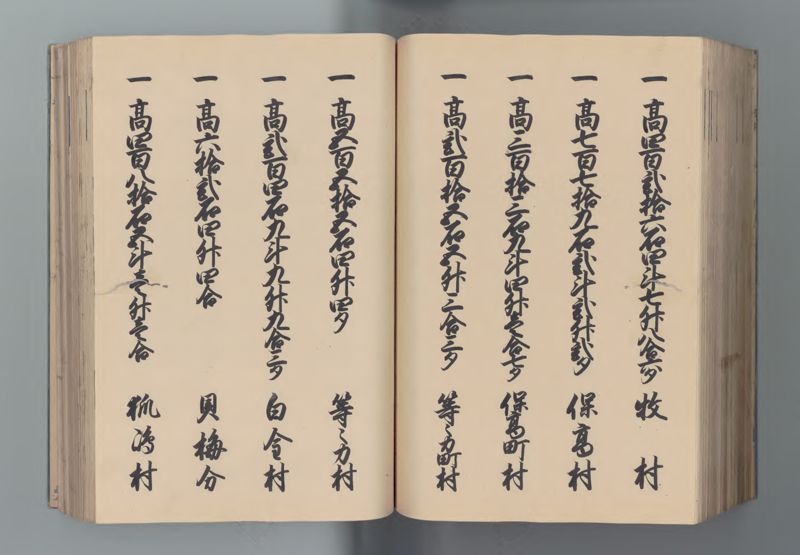 一 高四百弐拾六石四斗七升八合三夕 牧村
一 高七百七拾九石弐斗弐升弐夕 保高村
一 高三百拾三石九斗四升壱合七夕 保高町村
一 高弐百拾五石五升三合三夕 等々力町村
一 高五百五拾五石四升四夕 等々力村
一 高弐百四石九斗九升九合三夕 白金村
一 高六拾弐石四升四合 貝梅分
一 高四百八拾石五斗壱升壱合 狐嶋村